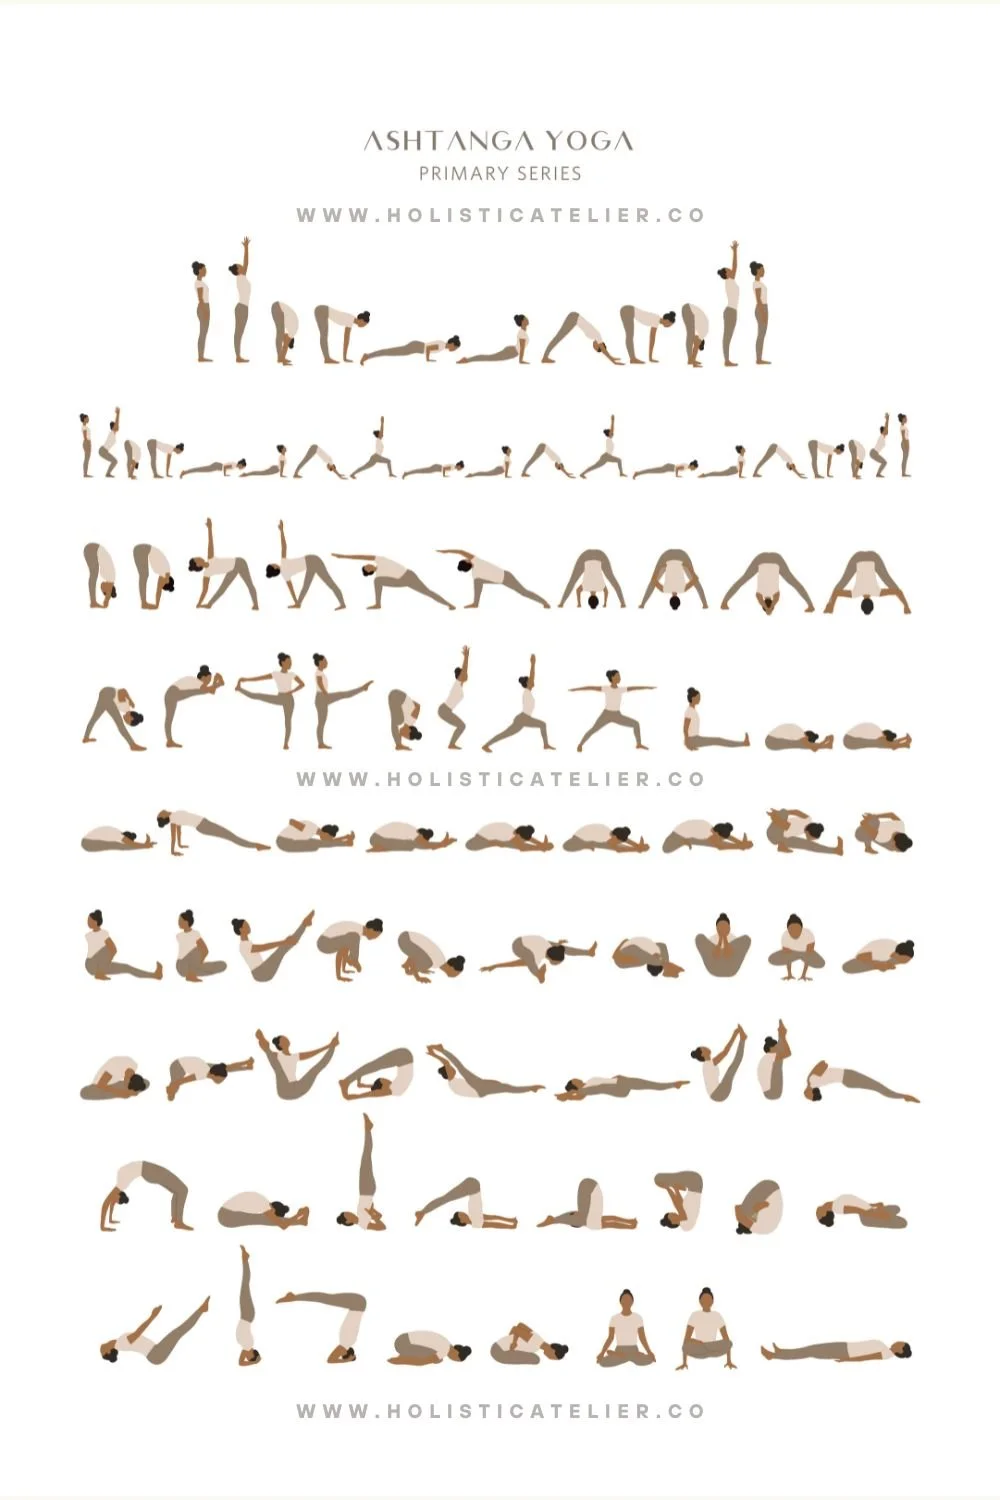 ASHTANGA YOGA
PRIMARY SERIES
WWW.HOLISTICATELIER.CO
WWW.HOLISTICATELIER.CO
WWW.HOLISTICATELIER.CO